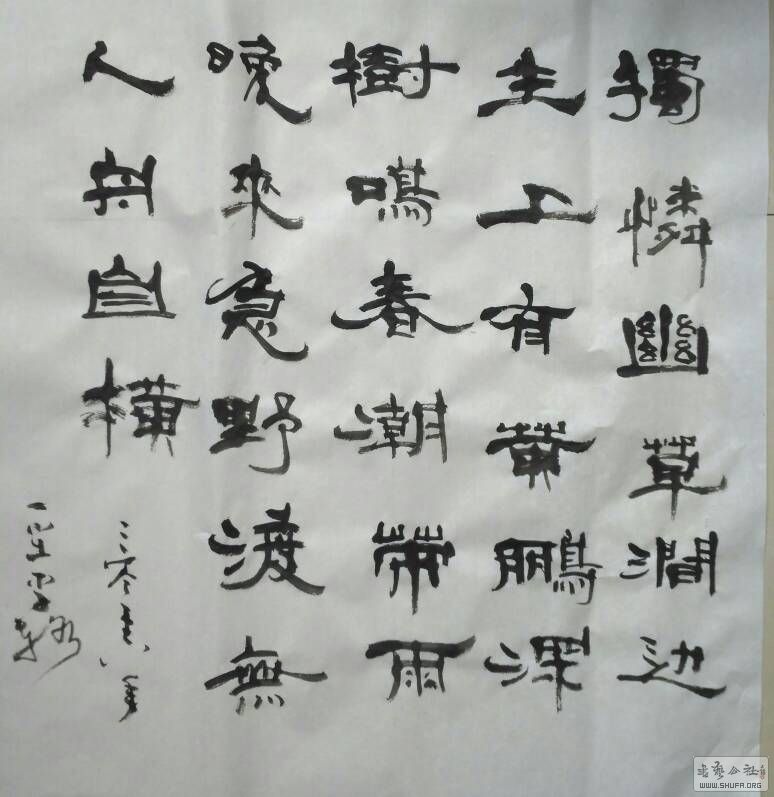 獨憐幽草澗边
生上有黄鵬深
樹鳴春潮帶雨
晚來急野渡無
人舟自横
二零壹八年
书艺公社
WWW.SHUFA.ORG